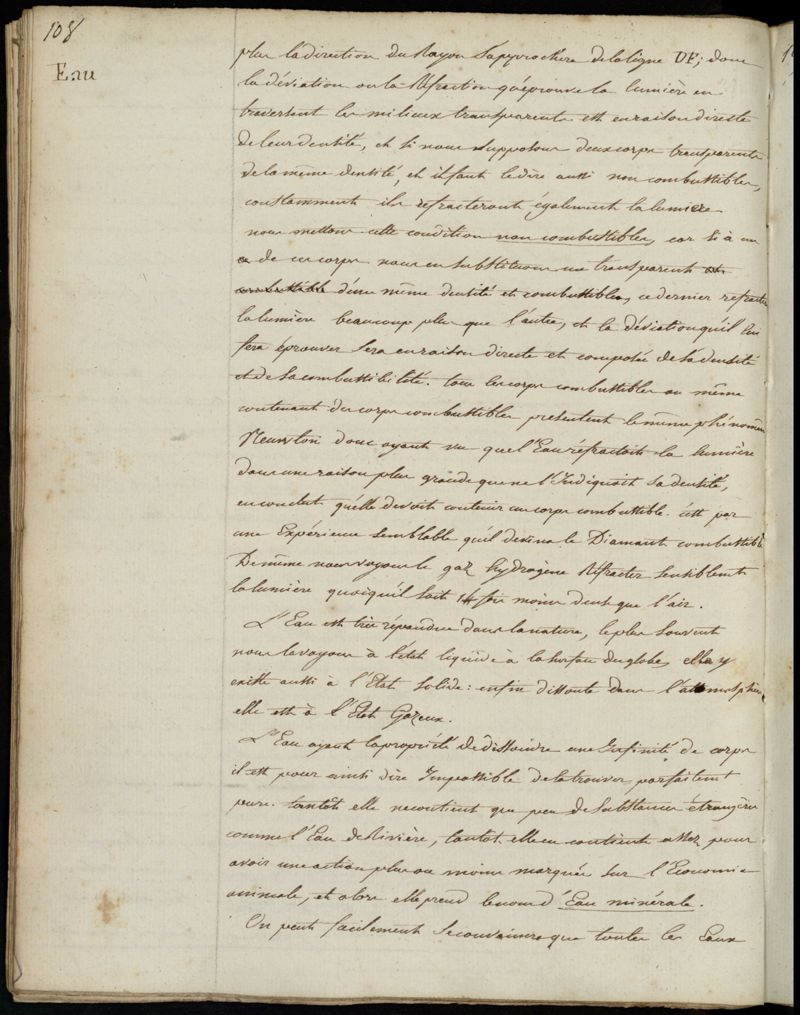 108
Eau
plus la direction du Rayon s'approchera de la ligne DF; donc
la déviation ou la Réfraction qu'éprouve la lumière en
traversant les milieux transparents est en raison directe
de leur densité, et si nous supposons deux corps transparents
de la même densité, et il faut le dire aussi non combustibles,
constamment ils refracteront également la lumière
nous mettons cette condition non combustibles, car si à un
de ces corps nous en substituons un transparent et
combustible d'une même densité et combustible, ce dernier refractera
la lumière beaucoup plus que l'autre, et la déviation qu'il lui
fera éprouver sera en raison directe et composée de sa densité
et de sa combustibilité. tous les corps combustibles ou même
contenant des corps combustibles présentent le même phénomène
Newton donc ayant vu que l'Eau réfractoit la lumière
dans une raison plus grande que ne l'Indiquait sa densité,
en conclut qu'elle devoit contenir un corps combustible. c'est par
une Expérience semblable qu'il devina le Diamant combustible
De même nous voyons le gaz hydrogène Réfracter sensiblement
la lumière quoiqu'il soit 14 fois moins dense que l'air.
L'Eau est très répandue dans la nature, le plus souvent
nous la voyons à l'état liquide à la surface du globe, elle y
existe aussi à l'Etat solide: enfin dissoute dans l'atmosphère
elle est à l'Etat Gazeux.
L'Eau ayant la propriété de dissoudre une Infinité de corps
il est pour ainsi dire Impossible de la trouver parfaitement
pure. tantôt elle ne contient que peu de substances étrangères
comme l'Eau de Rivière, tantôt elle en contient assez pour
avoir une action plus ou moins marquée sur l'Economie
animale, et alors elle prend le nom d'Eau minérale.
On peut facilement se convaincre que toutes les Eaux